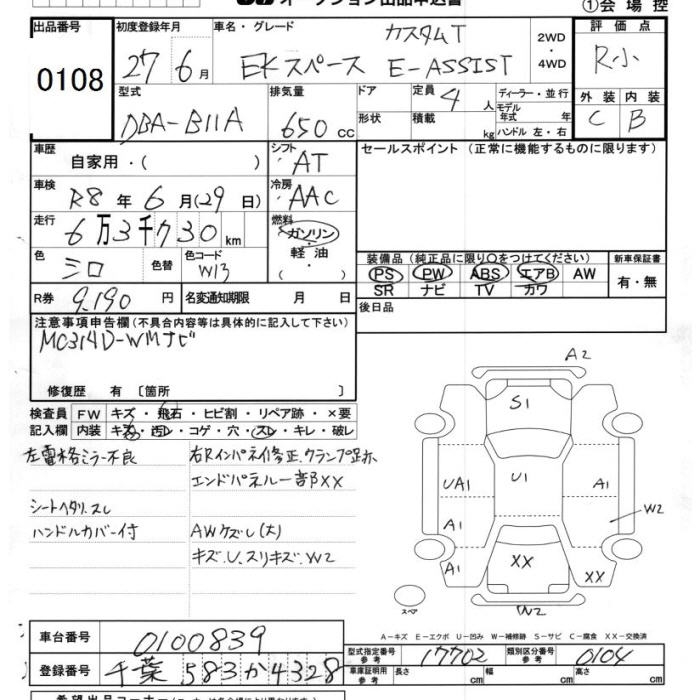 オークション出品申込書
①会場控
出品番号 0108
初度登録年月 27 6月
車名・グレード カスタムT
EKスペース E-ASSIST
2WD・4WD
評価点 R小
型式 DBA-B11A
排気量 650cc
ドア
形状
定員 4人
積載 kg
ディーラー・並行
モデル年式 年
ハンドル 左・右
外装 C
内装 B
車歴 自家用・( )
シフト AT
セールスポイント(正常に機能するものに限ります)
車検 R8年6月(29日)
冷房 AAC
走行 6万3千730km
燃料 ガソリン・軽油・( )
色 シロ
色替
カラーコード W13
装備品(純正品に限り○をつけてください)
新車保証書
PS PW ABS エアB AW
SR ナビ TV カワ
有・無
R券 9,190円
名変通知期限 月 日
後日品
注意事項申告欄(不具合内容等は具体的に記入して下さい)
MC314D-WMナビ
修復歴 有〔箇所 〕
検査員記入欄
FW キズ・飛石・ヒビ割・リペア跡・×要
内装 キズ・汚レ・コゲ・穴・スレ・キレ・破レ
左電格ミラー不良
右Rインパネ修正、クランプ跡
エンドパネル一部XX
シートヘタリ、スレ
ハンドルカバー付
AWケズレ(大)
キズ、U、スリキズ、W2
A2
S1
UA1 U1 A1
W2
A1
A1 XX XX
スペア
W2
A-キズ E-エクボ U-凹み W-補修跡 S-サビ C-腐食 XX-交換済
車台番号 0100839
登録番号 千葉583か4328
型式指定番号 参考 17702
類別区分番号 参考 0104
車庫証明用 参考 長さ cm 幅 cm 高さ cm